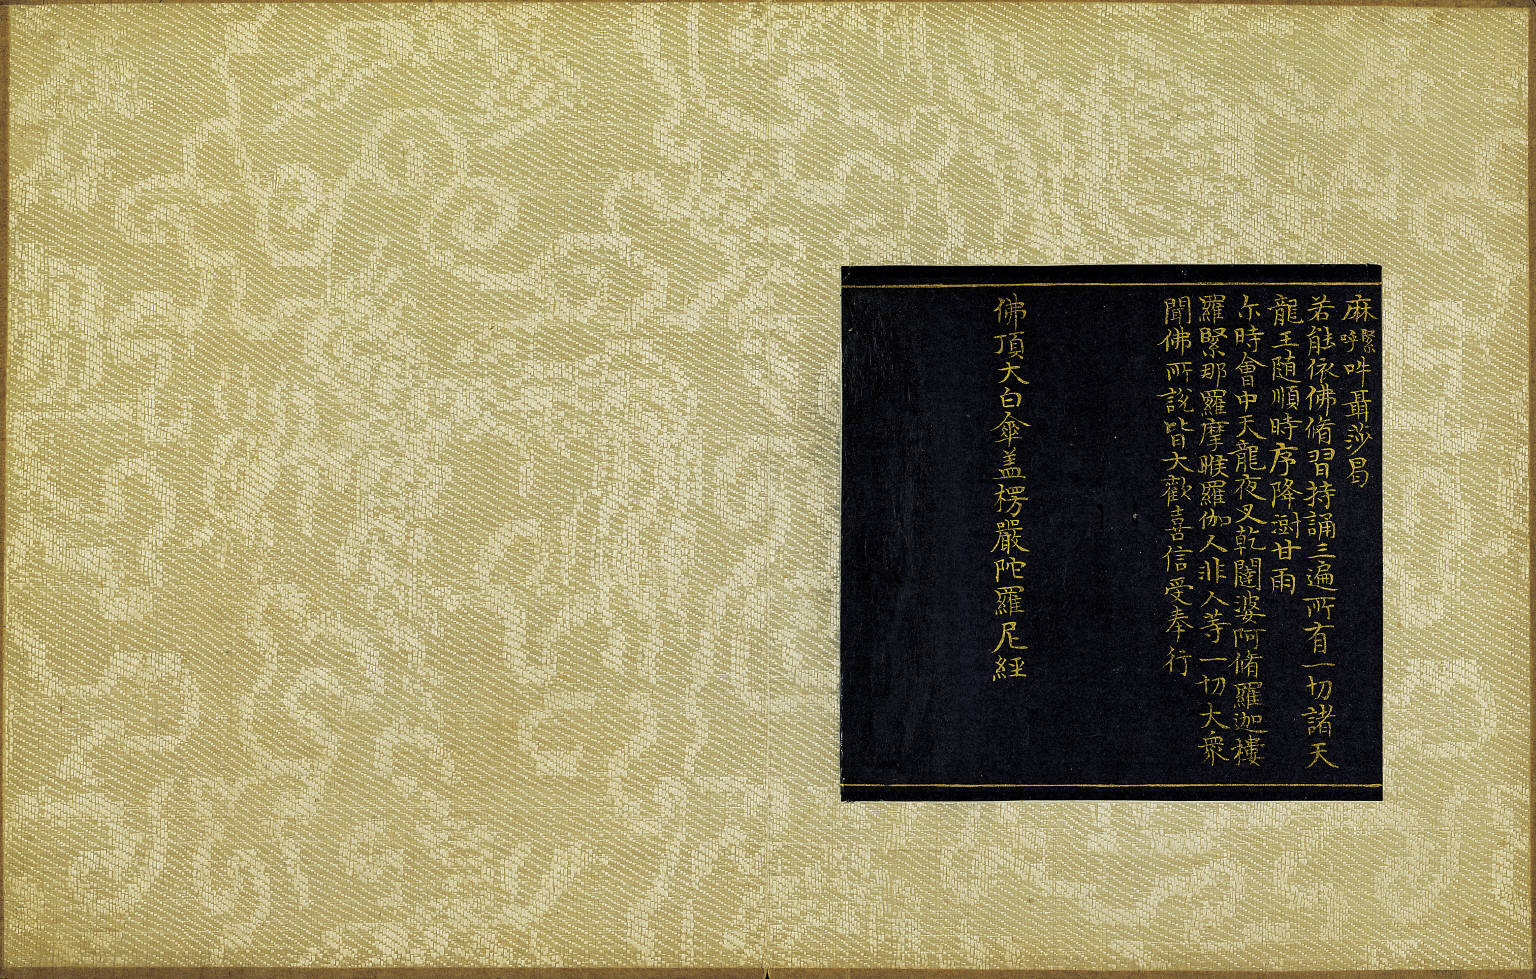 麻緊呼吽聶莎曷
若能依佛脩習持誦三遍所有一切諸天
龍王随順時序降澍甘雨
尒時會中天龍夜叉乾闥婆阿脩羅迦樓
羅緊那羅摩睺羅伽人非人等一切大衆
聞佛所説皆大歡喜信受奉行
佛頂大白傘盖楞嚴陀羅尼經